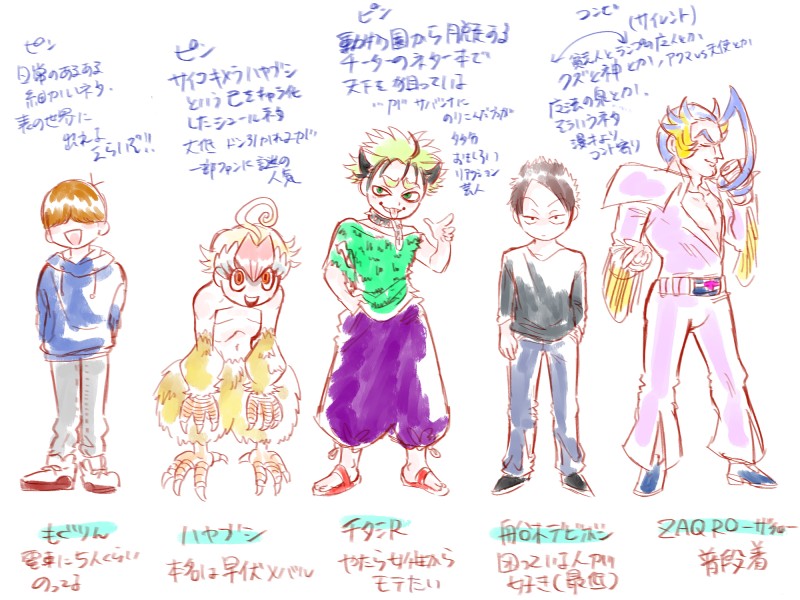 ピン
日常のあるある
細かいネタ。
表の世界に
出れるよ
えらいぞ!!
もぐりん
電車に5人くらい
のってる
ピン
サイコキメラハヤブシ
という己をキャラ化
したシュールネタ
大低 ドン引かれるが
一部ファンに謎の
人気
ハヤブシ
本名は早伏メバル
ピン
動物園から脱走する
チーターのネタまで
天下を狙っている
が サバンナに
のりこんだ
多分
おもしろい
リアクション
芸人
チタミR
やたら女性から
モテたい
コンビ
(サイレント)
貧乏人とランプの魔人とか
クズと神とか、アクマVS天使とか
魔法の泉とか。
そういうネタ
漫才より
コント寄り
船木デビボン
困っている人が
好き(最低)
ZAQRO-ザクロー
普段着